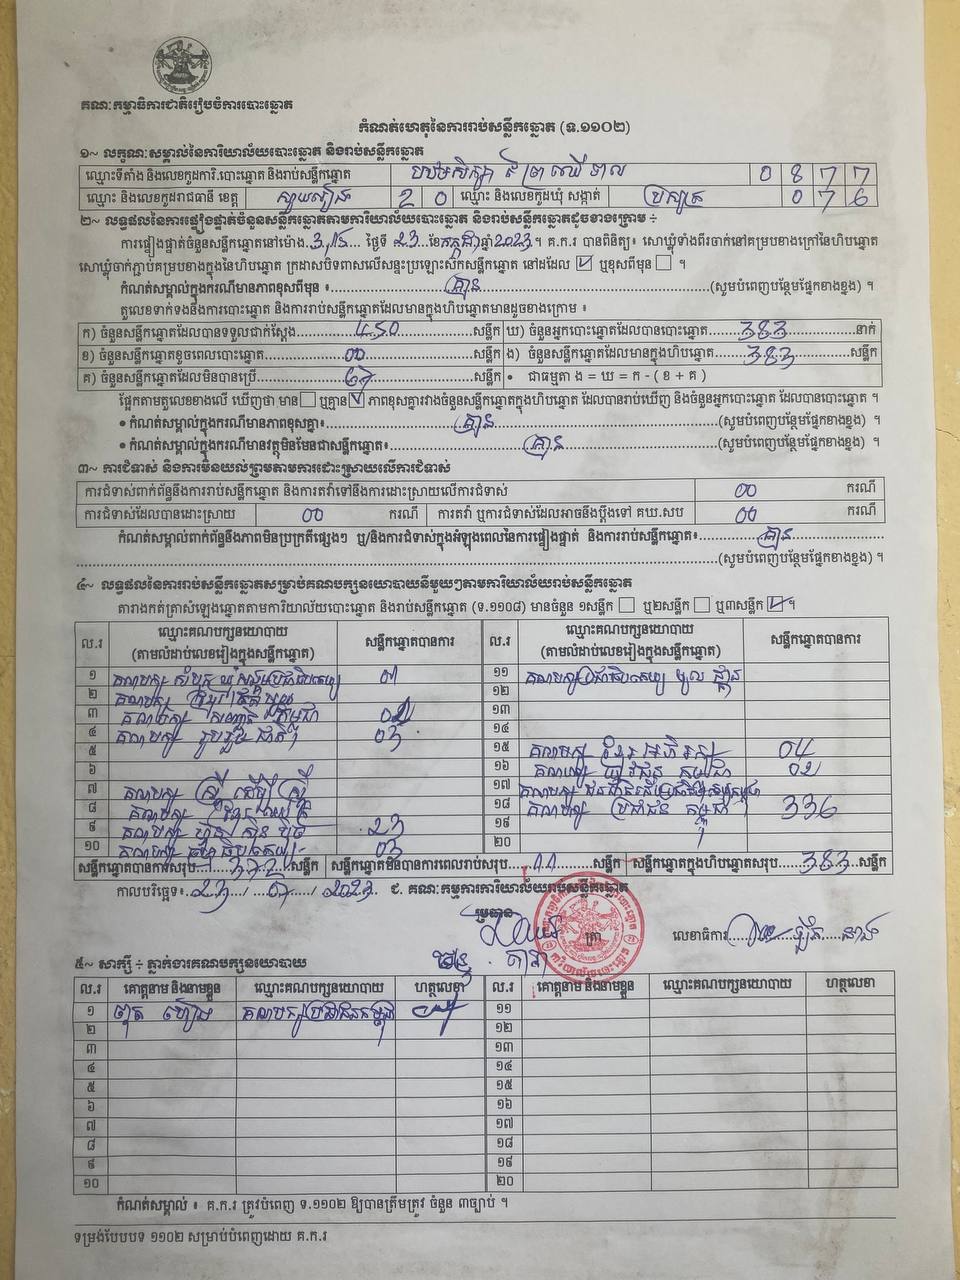 គណៈកម្មាធិការជាតិរៀបចំការបោះឆ្នោត
កំណត់ហេតុនៃការរាប់សន្លឹកឆ្នោត (ទ.១១០២)
១~ លក្ខណៈសម្គាល់នៃការិយាល័យបោះឆ្នោត និងរាប់សន្លឹកឆ្នោត
ឈ្មោះទីតាំង និងលេខកូដការិ.បោះឆ្នោត និងរាប់សន្លឹកឆ្នោត បឋមសិក្សា 0 8 7 7
ឈ្មោះ និងលេខកូដរាជធានី ខេត្ត ស្វាយរៀង 2 0 ឈ្មោះ និងលេខកូដឃុំ សង្កាត់ ប្រសូត្រ 0 7 6
២~ លទ្ធផលនៃការផ្ទៀងផ្ទាត់ចំនួនសន្លឹកឆ្នោតតាមការិយាល័យបោះឆ្នោត និងរាប់សន្លឹកឆ្នោតដូចខាងក្រោម ÷
ការផ្ទៀងផ្ទាត់ចំនួនសន្លឹកឆ្នោតនៅម៉ោង 3:15 ថ្ងៃទី 23 ខែកក្កដាឆ្នាំ2023។ គ.ក.រ បានពិនិត្យ៖ សោឃ្មុំទាំងពីរចាក់នៅគម្របខាងក្រៅនៃហិបឆ្នោត
សោឃ្មុំចាក់ភ្ជាប់គម្របខាងក្នុងនៃហិបឆ្នោត ក្រដាសបិទពាសលើសន្ទះប្រឡោះស៊កសន្លឹកឆ្នោត នៅដដែល ☑ ឬខុសពីមុន ☐ ។
កំណត់សម្គាល់ក្នុងករណីមានភាពខុសពីមុន ៖ គ្មាន (សូមបំពេញបន្ថែមផ្នែកខាងខ្នង) ។
តួលេខទាក់ទងនឹងការបោះឆ្នោត និងការរាប់សន្លឹកឆ្នោតដែលមានក្នុងហិបឆ្នោតមានដូចខាងក្រោម ៖
ក) ចំនួនសន្លឹកឆ្នោតដែលបានទទួលជាក់ស្តែង 450 សន្លឹក ឃ) ចំនួនអ្នកបោះឆ្នោតដែលបានបោះឆ្នោត 383 នាក់
ខ) ចំនួនសន្លឹកឆ្នោតខូចពេលបោះឆ្នោត 00 សន្លឹក ង) ចំនួនសន្លឹកឆ្នោតដែលមានក្នុងហិបឆ្នោត 383 សន្លឹក
គ) ចំនួនសន្លឹកឆ្នោតដែលមិនបានប្រើ 67 សន្លឹក • ជាធម្មតា ង = ឃ = ក - ( ខ + គ )
ផ្អែកតាមតួលេខខាងលើ ឃើញថា មាន ☐ ឬគ្មាន ☑ ភាពខុសគ្នារវាងចំនួនសន្លឹកឆ្នោតក្នុងហិបឆ្នោត ដែលបានរាប់ឃើញ និងចំនួនអ្នកបោះឆ្នោត ដែលបានបោះឆ្នោត ។
• កំណត់សម្គាល់ក្នុងករណីមានភាពខុសគ្នា៖ គ្មាន (សូមបំពេញបន្ថែមផ្នែកខាងខ្នង) ។
• កំណត់សម្គាល់ក្នុងករណីមានវត្ថុមិនមែនជាសន្លឹកឆ្នោត៖ គ្មាន (សូមបំពេញបន្ថែមផ្នែកខាងខ្នង) ។
៣~ ការជំទាស់ និងការមិនយល់ព្រមតាមការដោះស្រាយលើការជំទាស់
ការជំទាស់ពាក់ព័ន្ធនឹងការរាប់សន្លឹកឆ្នោត និងការតវ៉ាទៅនឹងការដោះស្រាយលើការជំទាស់ 00 ករណី
ការជំទាស់ដែលបានដោះស្រាយ 00 ករណី ការតវ៉ា ឬការជំទាស់ដែលអាចនឹងប្តឹងទៅ គឃ.សប 00 ករណី
កំណត់សម្គាល់ពាក់ព័ន្ធនឹងភាពមិនប្រក្រតីផ្សេងៗ ឬ/និងការជំទាស់ក្នុងអំឡុងពេលនៃការផ្ទៀងផ្ទាត់ និងការរាប់សន្លឹកឆ្នោត៖ គ្មាន
(សូមបំពេញបន្ថែមផ្នែកខាងខ្នង) ។
៤~ លទ្ធផលនៃការរាប់សន្លឹកឆ្នោតសម្រាប់គណបក្សនយោបាយនីមួយៗតាមការិយាល័យរាប់សន្លឹកឆ្នោត
តារាងកត់ត្រាសំឡេងឆ្នោតតាមការិយាល័យបោះឆ្នោត និងរាប់សន្លឹកឆ្នោត (ទ.១១០៨) មានចំនួន ១សន្លឹក ☐ ឬ២សន្លឹក ☐ ឬ៣សន្លឹក ☑ ។
ល.រ ឈ្មោះគណបក្សនយោបាយ (តាមលំដាប់លេខរៀងក្នុងសន្លឹកឆ្នោត) សន្លឹកឆ្នោតបានការ ល.រ ឈ្មោះគណបក្សនយោបាយ (តាមលំដាប់លេខរៀងក្នុងសន្លឹកឆ្នោត) សន្លឹកឆ្នោតបានការ
១ គណបក្ស សំបុកឃ្មុំសង្គមប្រជាធិបតេយ្យ 01 ១១ គណបក្សប្រជាធិបតេយ្យ មូលដ្ឋាន
២ គណបក្ស ១២
៣ គណបក្ស សញ្ជាតិ កម្ពុជា 02 ១៣
៤ គណបក្ស រួបរួមជាតិ 03 ១៤
៥ ១៥ គណបក្ស 04
៦ ១៦ គណបក្ស យុវជន កម្ពុជា 02
៧ គណបក្ស ស្ត្រី ដើម្បី ស្ត្រី ១៧ គណបក្ស
៨ គណបក្ស ១៨ គណបក្ស ប្រជាជន កម្ពុជា 336
៩ គណបក្ស ហ៊្វុនស៊ិនប៉ិច 23 ១៩
១០ គណបក្ស 03 ២០
សន្លឹកឆ្នោតបានការសរុប 372 សន្លឹក សន្លឹកឆ្នោតមិនបានការពេលរាប់សរុប 11 សន្លឹក សន្លឹកឆ្នោតក្នុងហិបឆ្នោតសរុប 383 សន្លឹក
កាលបរិច្ឆេទ៖ 23 / 7 / 2023 ជ. គណៈកម្មការការិយាល័យរាប់សន្លឹកឆ្នោត
ប្រធាន ត្រា លេខាធិការ
៥~ សាក្សី ÷ ភ្នាក់ងារគណបក្សនយោបាយ
ល.រ គោត្តនាម និងនាមខ្លួន ឈ្មោះគណបក្សនយោបាយ ហត្ថលេខា ល.រ គោត្តនាម និងនាមខ្លួន ឈ្មោះគណបក្សនយោបាយ ហត្ថលេខា
១ គណបក្សប្រជាជនកម្ពុជា ១១
២ ១២
៣ ១៣
៤ ១៤
៥ ១៥
៦ ១៦
៧ ១៧
៨ ១៨
៩ ១៩
១០ ២០
កំណត់សម្គាល់ ៖ គ.ក.រ ត្រូវបំពេញ ទ.១១០២ ឱ្យបានត្រឹមត្រូវ ចំនួន ៣ច្បាប់ ។
ទម្រង់បែបបទ ១១០២ សម្រាប់បំពេញដោយ គ.ក.រ